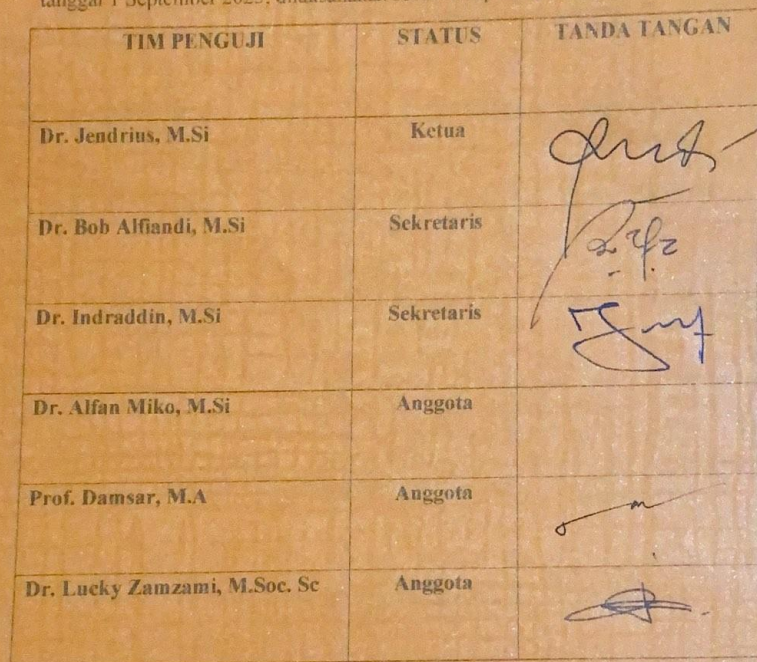 tanggal 1 September
TIM PENGUJI STATUS TANDA TANGAN
Dr. Jendrius, M.Si Ketua
Dr. Bob Alfiandi, M.Si Sekretaris
Dr. Indraddin, M.Si Sekretaris
Dr. Alfan Miko, M.Si Anggota
Prof. Damsar, M.A Anggota
Dr. Lucky Zamzami, M.Soc. Sc Anggota